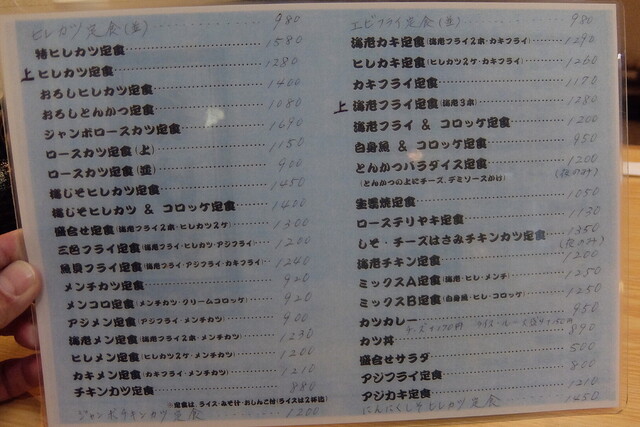 ヒレカツ定食(並) 980
特ヒレカツ定食 1580
上 ヒレカツ定食 1280
おろしヒレカツ定食 1400
おろしとんかつ定食 1080
ジャンボロースカツ定食 1690
ロースカツ定食(上) 1150
ロースカツ定食(並) 900
梅じそヒレカツ定食 1450
梅じそヒレカツ & コロッケ定食 1400
盛合せ定食(海老フライ2本・ヒレカツ2ケ) 1300
三色フライ定食(海老フライ・ヒレカツ・アジフライ) 1200
魚貝フライ定食(海老フライ・アジフライ・カキフライ) 1240
メンチカツ定食 920
メンコロ定食(メンチカツ・クリームコロッケ) 920
アジメン定食(アジフライ・メンチカツ) 900
海老メン定食(海老フライ2本・メンチカツ) 1230
ヒレメン定食(ヒレカツ2ケ・メンチカツ) 1200
カキメン定食(カキフライ・メンチカツ) 1210
チキンカツ定食 880
※定食は ライス・みそ汁・おしんこ付(ライスは2杯迄)
ジャンボチキンカツ定食 1200
エビフライ定食(並) 980
海老カキ定食(海老フライ2本・カキフライ) 1290
ヒレカキ定食(ヒレカツ2ケ・カキフライ) 1260
カキフライ定食 1170
上 海老フライ定食(海老3本) 1280
海老フライ & コロッケ定食 1200
白身魚 & コロッケ定食 950
とんかつパラダイス定食 1200
(とんかつの上にチーズ、デミソースかけ) (夜のみ)
生姜焼定食 1050
ローステリヤキ定食 1130
しそ・チーズはさみチキンカツ定食 1350
(夜のみ)
海老チキン定食 1200
ミックスA定食(海老・ヒレ・メンチ) 1250
ミックスB定食(白身魚・ヒレ・コロッケ) 1250
カツカレー 950
カツ丼 890
盛合せサラダ 500
アジフライ定食 800
アジカキ定食 1210
にんにくしそヒレカツ定食 1450